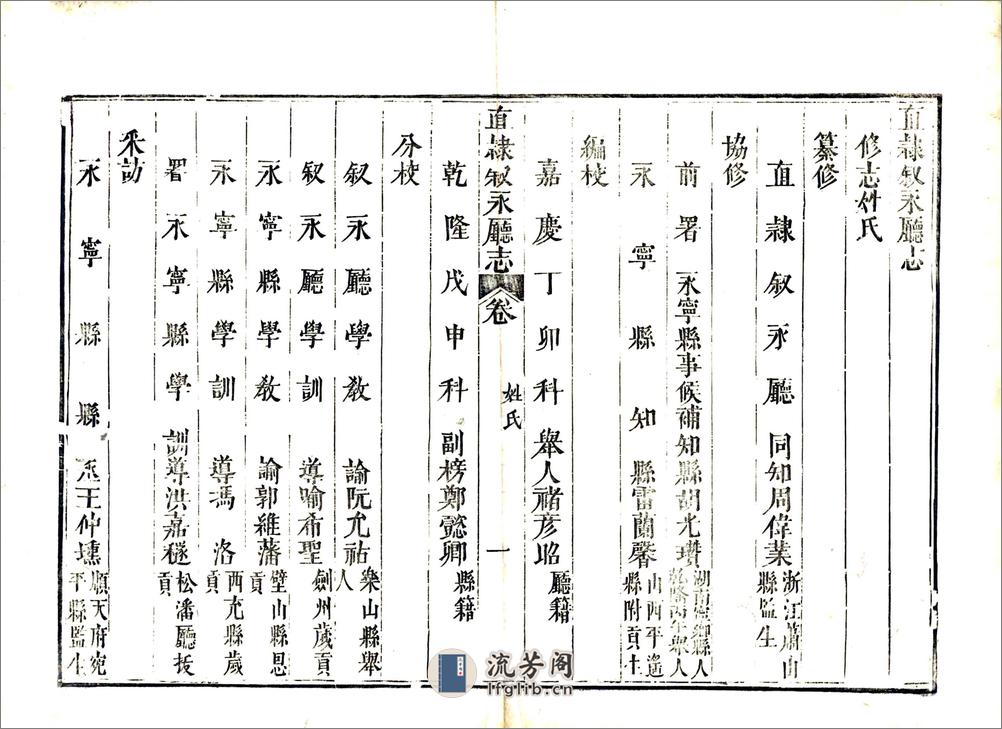 直隸叙永廳志
修志姓氏
纂修
直隸叙永廳同知周偉業浙江蕭山縣監生
協修
前署永寧縣事候補知縣胡光瓚湖南湘鄉縣人乾隆丙午舉人
永寧縣知縣雷蘭馨山西平遙縣附貢生
編校
嘉慶丁卯科舉人褚彦昭廳籍
乾隆戊申科副榜鄭懿卿縣籍
直隸叙永廳志 卷 姓氏 一
分校
叙永廳學教諭阮允祐樂山縣舉人
叙永廳學訓導喻希聖劍州歲貢
永寧縣學教諭郭維藩壁山縣恩貢
永寧縣學訓導馮洛西充縣歲貢
署永寧縣學訓導洪嘉穟松潘廳拔貢
采訪
永寧縣縣丞王仲壎順天府宛平縣監生
流芳阁
lfglib.cn